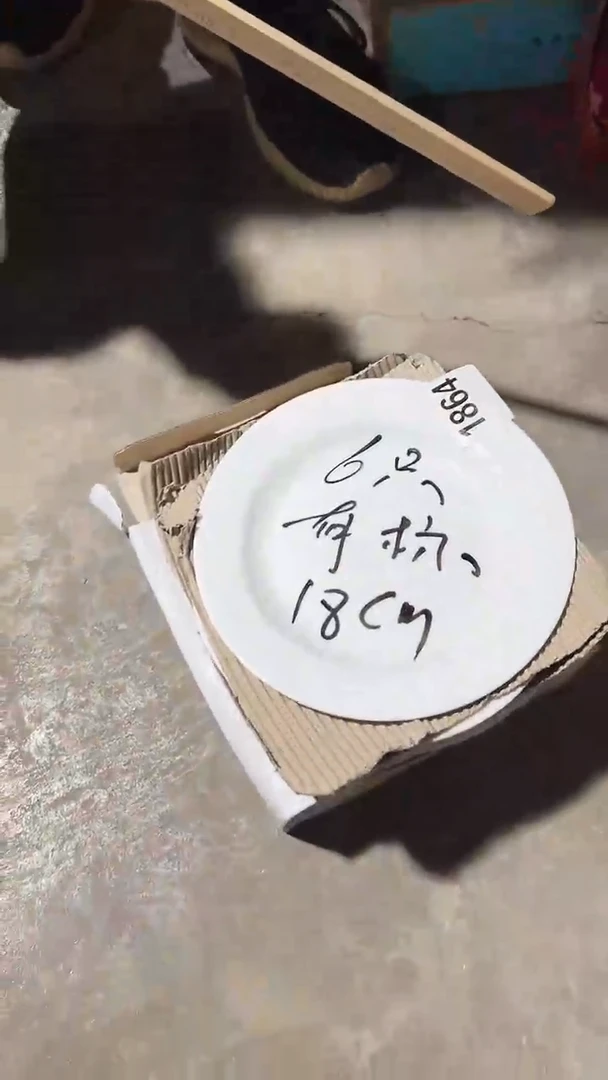 1864
6只、
有坑、
18cm